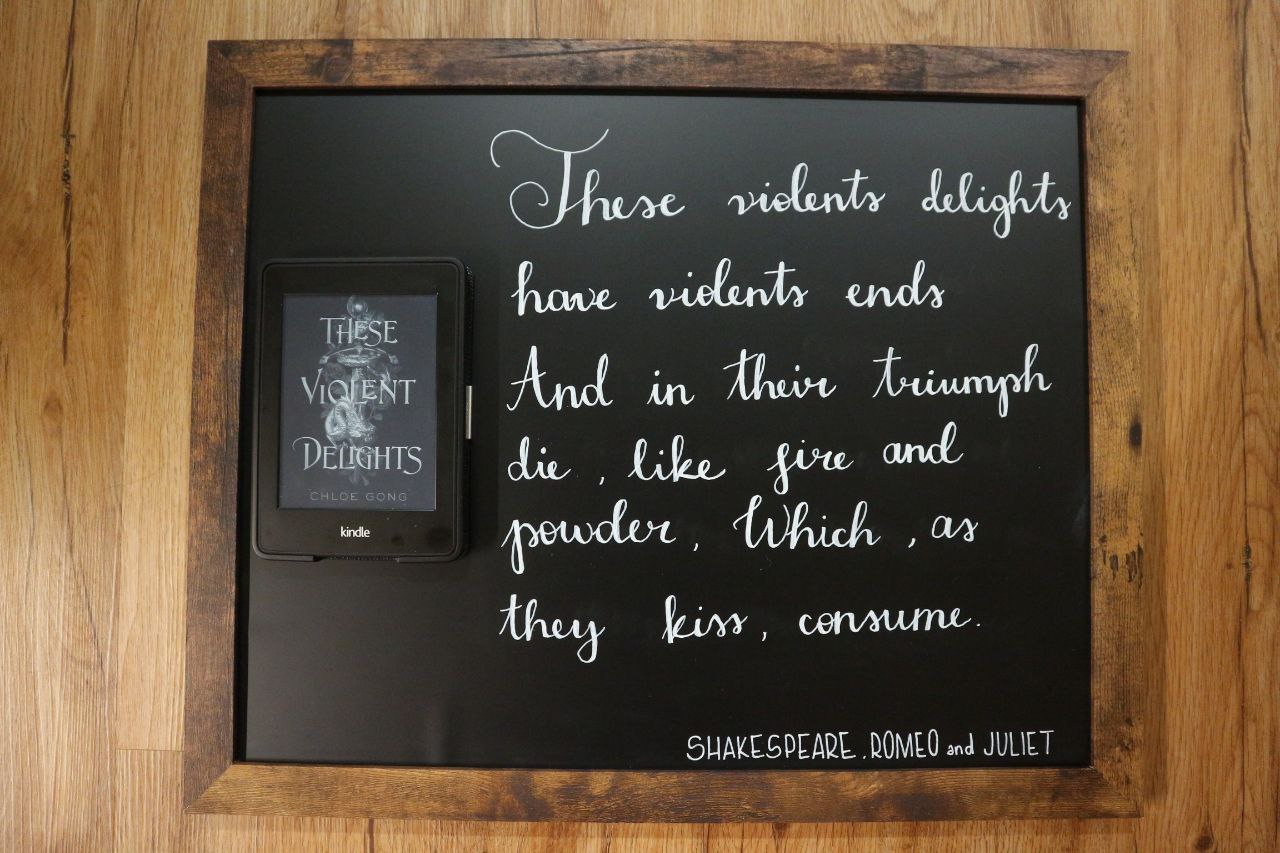 THESE
VIOLENT
DELIGHTS
CHLOE GONG
kindle
These violents delights
have violents ends
And in their triumph
die, like fire and
powder, Which, as
they kiss, consume.
SHAKESPEARE. ROMEO and JULIET